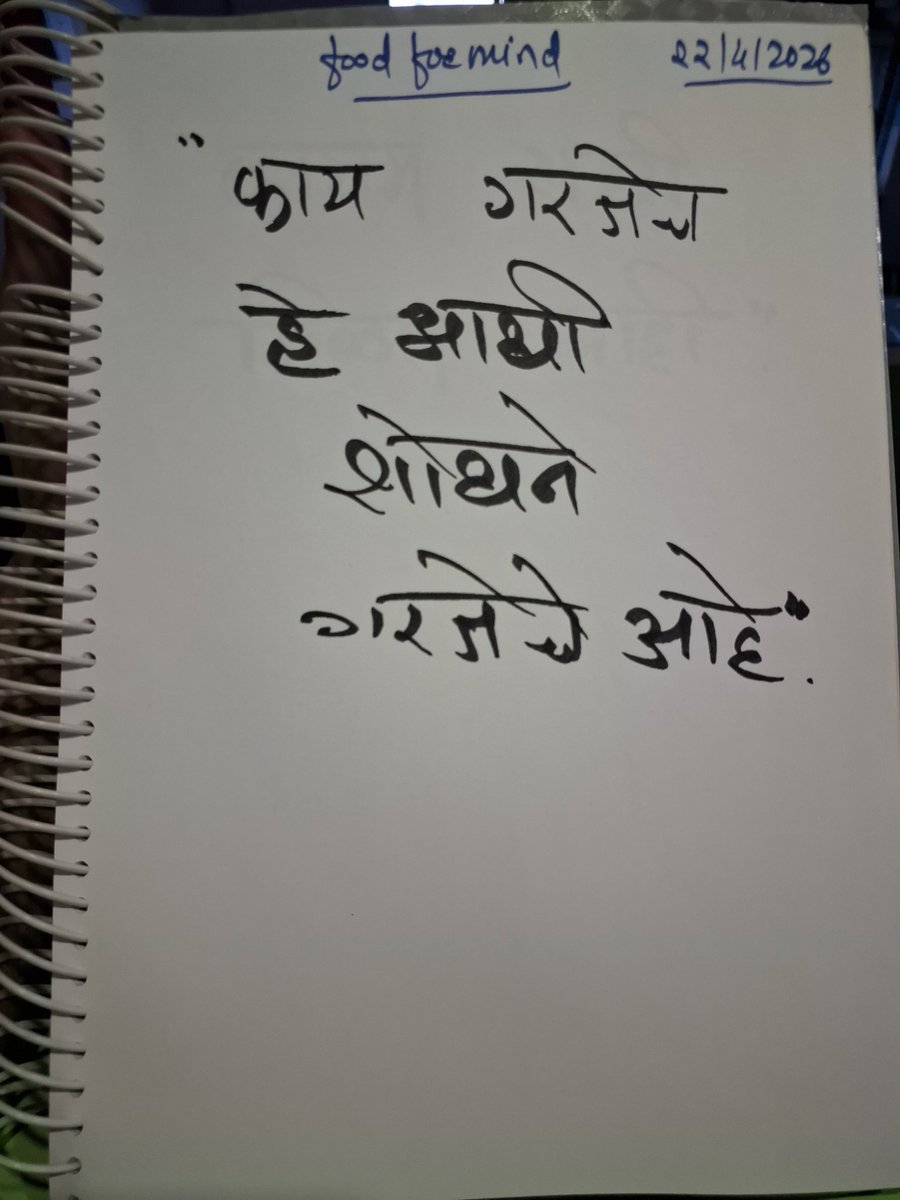 food for mind 22/4/2026
"काय गरजेच
हे आधी
शोधने
गरजेचे आहे".